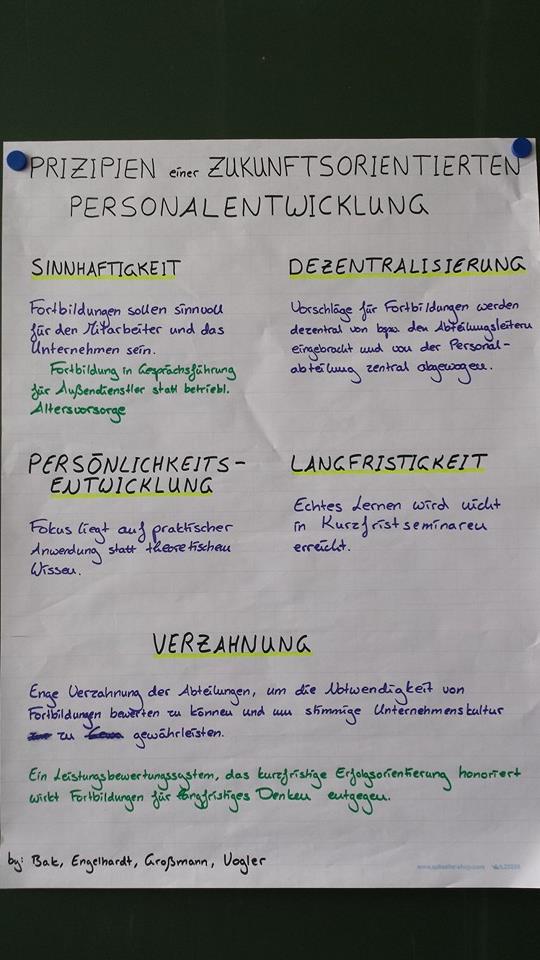 PRIZIPIEN einer ZUKUNFTSORIENTIERTEN
PERSONALENTWICKLUNG
SINNHAFTIGKEIT
Fortbildungen sollen sinnvoll
für den Mitarbeiter und das
Unternehmen sein.
Fortbildung in Gesprächsführung
für Außendienstler statt betriebl.
Altersvorsorge
DEZENTRALISIERUNG
Vorschläge für Fortbildungen werden
dezentral von bspw. den Abteilungsleitern
eingebracht und von der Personal-
abteilung zentral abgewogen.
PERSÖNLICHKEITS-
ENTWICKLUNG
Fokus liegt auf praktischer
Anwendung statt theoretischem
Wissen.
LANGFRISTIGKEIT
Echtes Lernen wird nicht
in Kurzfristseminaren
erreicht.
VERZAHNUNG
Enge Verzahnung der Abteilungen, um die Notwendigkeit von
Fortbildungen bewerten zu können und um stimmige Unternehmenskultur
zu gewährleisten.
Ein Leistungsbewertungssystem, das kurzfristige Erfolgsorientierung honoriert
wirkt Fortbildungen für langfristiges Denken entgegen.
by: Bak, Engelhardt, Großmann, Vogler